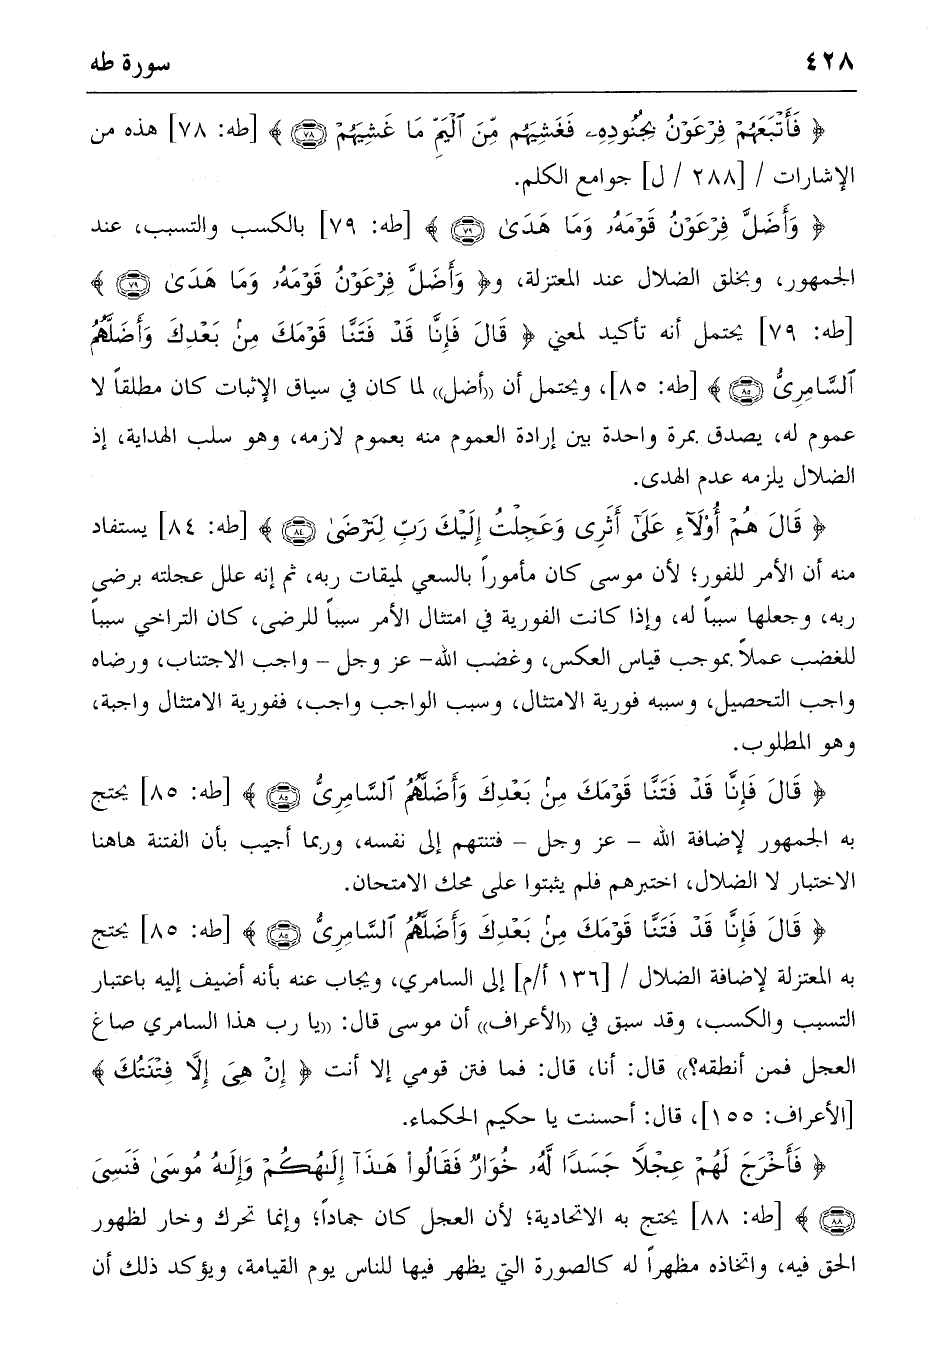 ٤٢٨ سورة طه
﴿ فَأَتْبَعَهُمْ فِرْعَوْنُ بِجُنُودِهِۦ فَغَشِيَهُم مِّنَ ٱلْيَمِّ مَا غَشِيَهُمْ ۝٧٨ ﴾ [طه: ٧٨] هذه من
الإشارات / [٢٨٨ / ل] جوامع الكلم.
﴿ وَأَضَلَّ فِرْعَوْنُ قَوْمَهُۥ وَمَا هَدَىٰ ۝٧٩ ﴾ [طه: ٧٩] بالكسب والتسبب، عند
الجمهور، وبخلق الضلال عند المعتزلة، و﴿ وَأَضَلَّ فِرْعَوْنُ قَوْمَهُۥ وَمَا هَدَىٰ ۝٧٩ ﴾
[طه: ٧٩] يحتمل أنه تأكيد لمعني ﴿ قَالَ فَإِنَّا قَدْ فَتَنَّا قَوْمَكَ مِنۢ بَعْدِكَ وَأَضَلَّهُمُ
ٱلسَّامِرِىُّ ۝٨٥ ﴾ [طه: ٨٥]، ويحتمل أن «أضل» لما كان في سياق الإثبات كان مطلقاً لا
عموم له، يصدق بمرة واحدة بين إرادة العموم منه بعموم لازمه، وهو سلب الهداية، إذ
الضلال يلزمه عدم الهدى.
﴿ قَالَ هُمْ أُوْلَآءِ عَلَىٰٓ أَثَرِى وَعَجِلْتُ إِلَيْكَ رَبِّ لِتَرْضَىٰ ۝٨٤ ﴾ [طه: ٨٤] يستفاد
منه أن الأمر للفور؛ لأن موسى كان مأموراً بالسعي لميقات ربه، ثم إنه علل عجلته برضى
ربه، وجعلها سبباً له، وإذا كانت الفورية في امتثال الأمر سبباً للرضى، كان التراخي سبباً
للغضب عملاً بموجب قياس العكس، وغضب الله- عز وجل – واجب الاجتناب، ورضاه
واجب التحصيل، وسببه فورية الامتثال، وسبب الواجب واجب، ففورية الامتثال واجبة،
وهو المطلوب.
﴿ قَالَ فَإِنَّا قَدْ فَتَنَّا قَوْمَكَ مِنۢ بَعْدِكَ وَأَضَلَّهُمُ ٱلسَّامِرِىُّ ۝٨٥ ﴾ [طه: ٨٥] يحتج
به الجمهور لإضافة الله – عز وجل – فتنتهم إلى نفسه، وربما أجيب بأن الفتنة هاهنا
الاختبار لا الضلال، اختبرهم فلم يثبتوا على محك الامتحان.
﴿ قَالَ فَإِنَّا قَدْ فَتَنَّا قَوْمَكَ مِنۢ بَعْدِكَ وَأَضَلَّهُمُ ٱلسَّامِرِىُّ ۝٨٥ ﴾ [طه: ٨٥] يحتج
به المعتزلة لإضافة الضلال / [١٣٦ أ/م] إلى السامري، ويجاب عنه بأنه أضيف إليه باعتبار
التسبب والكسب، وقد سبق في «الأعراف» أن موسى قال: «يا رب هذا السامري صاغ
العجل فمن أنطقه؟» قال: أنا، قال: فما فتن قومي إلا أنت ﴿ إِنْ هِىَ إِلَّا فِتْنَتُكَ ﴾
[الأعراف: ١٥٥]، قال: أحسنت يا حكيم الحكماء.
﴿ فَأَخْرَجَ لَهُمْ عِجْلًا جَسَدًا لَّهُۥ خُوَارٌ فَقَالُوا۟ هَـٰذَآ إِلَـٰهُكُمْ وَإِلَـٰهُ مُوسَىٰ فَنَسِىَ
۝٨٨ ﴾ [طه: ٨٨] يحتج به الاتحادية؛ لأن العجل كان جماداً؛ وإنما تحرك وخار لظهور
الحق فيه، واتخاذه مظهراً له كالصورة التي يظهر فيها للناس يوم القيامة، ويؤكد ذلك أن